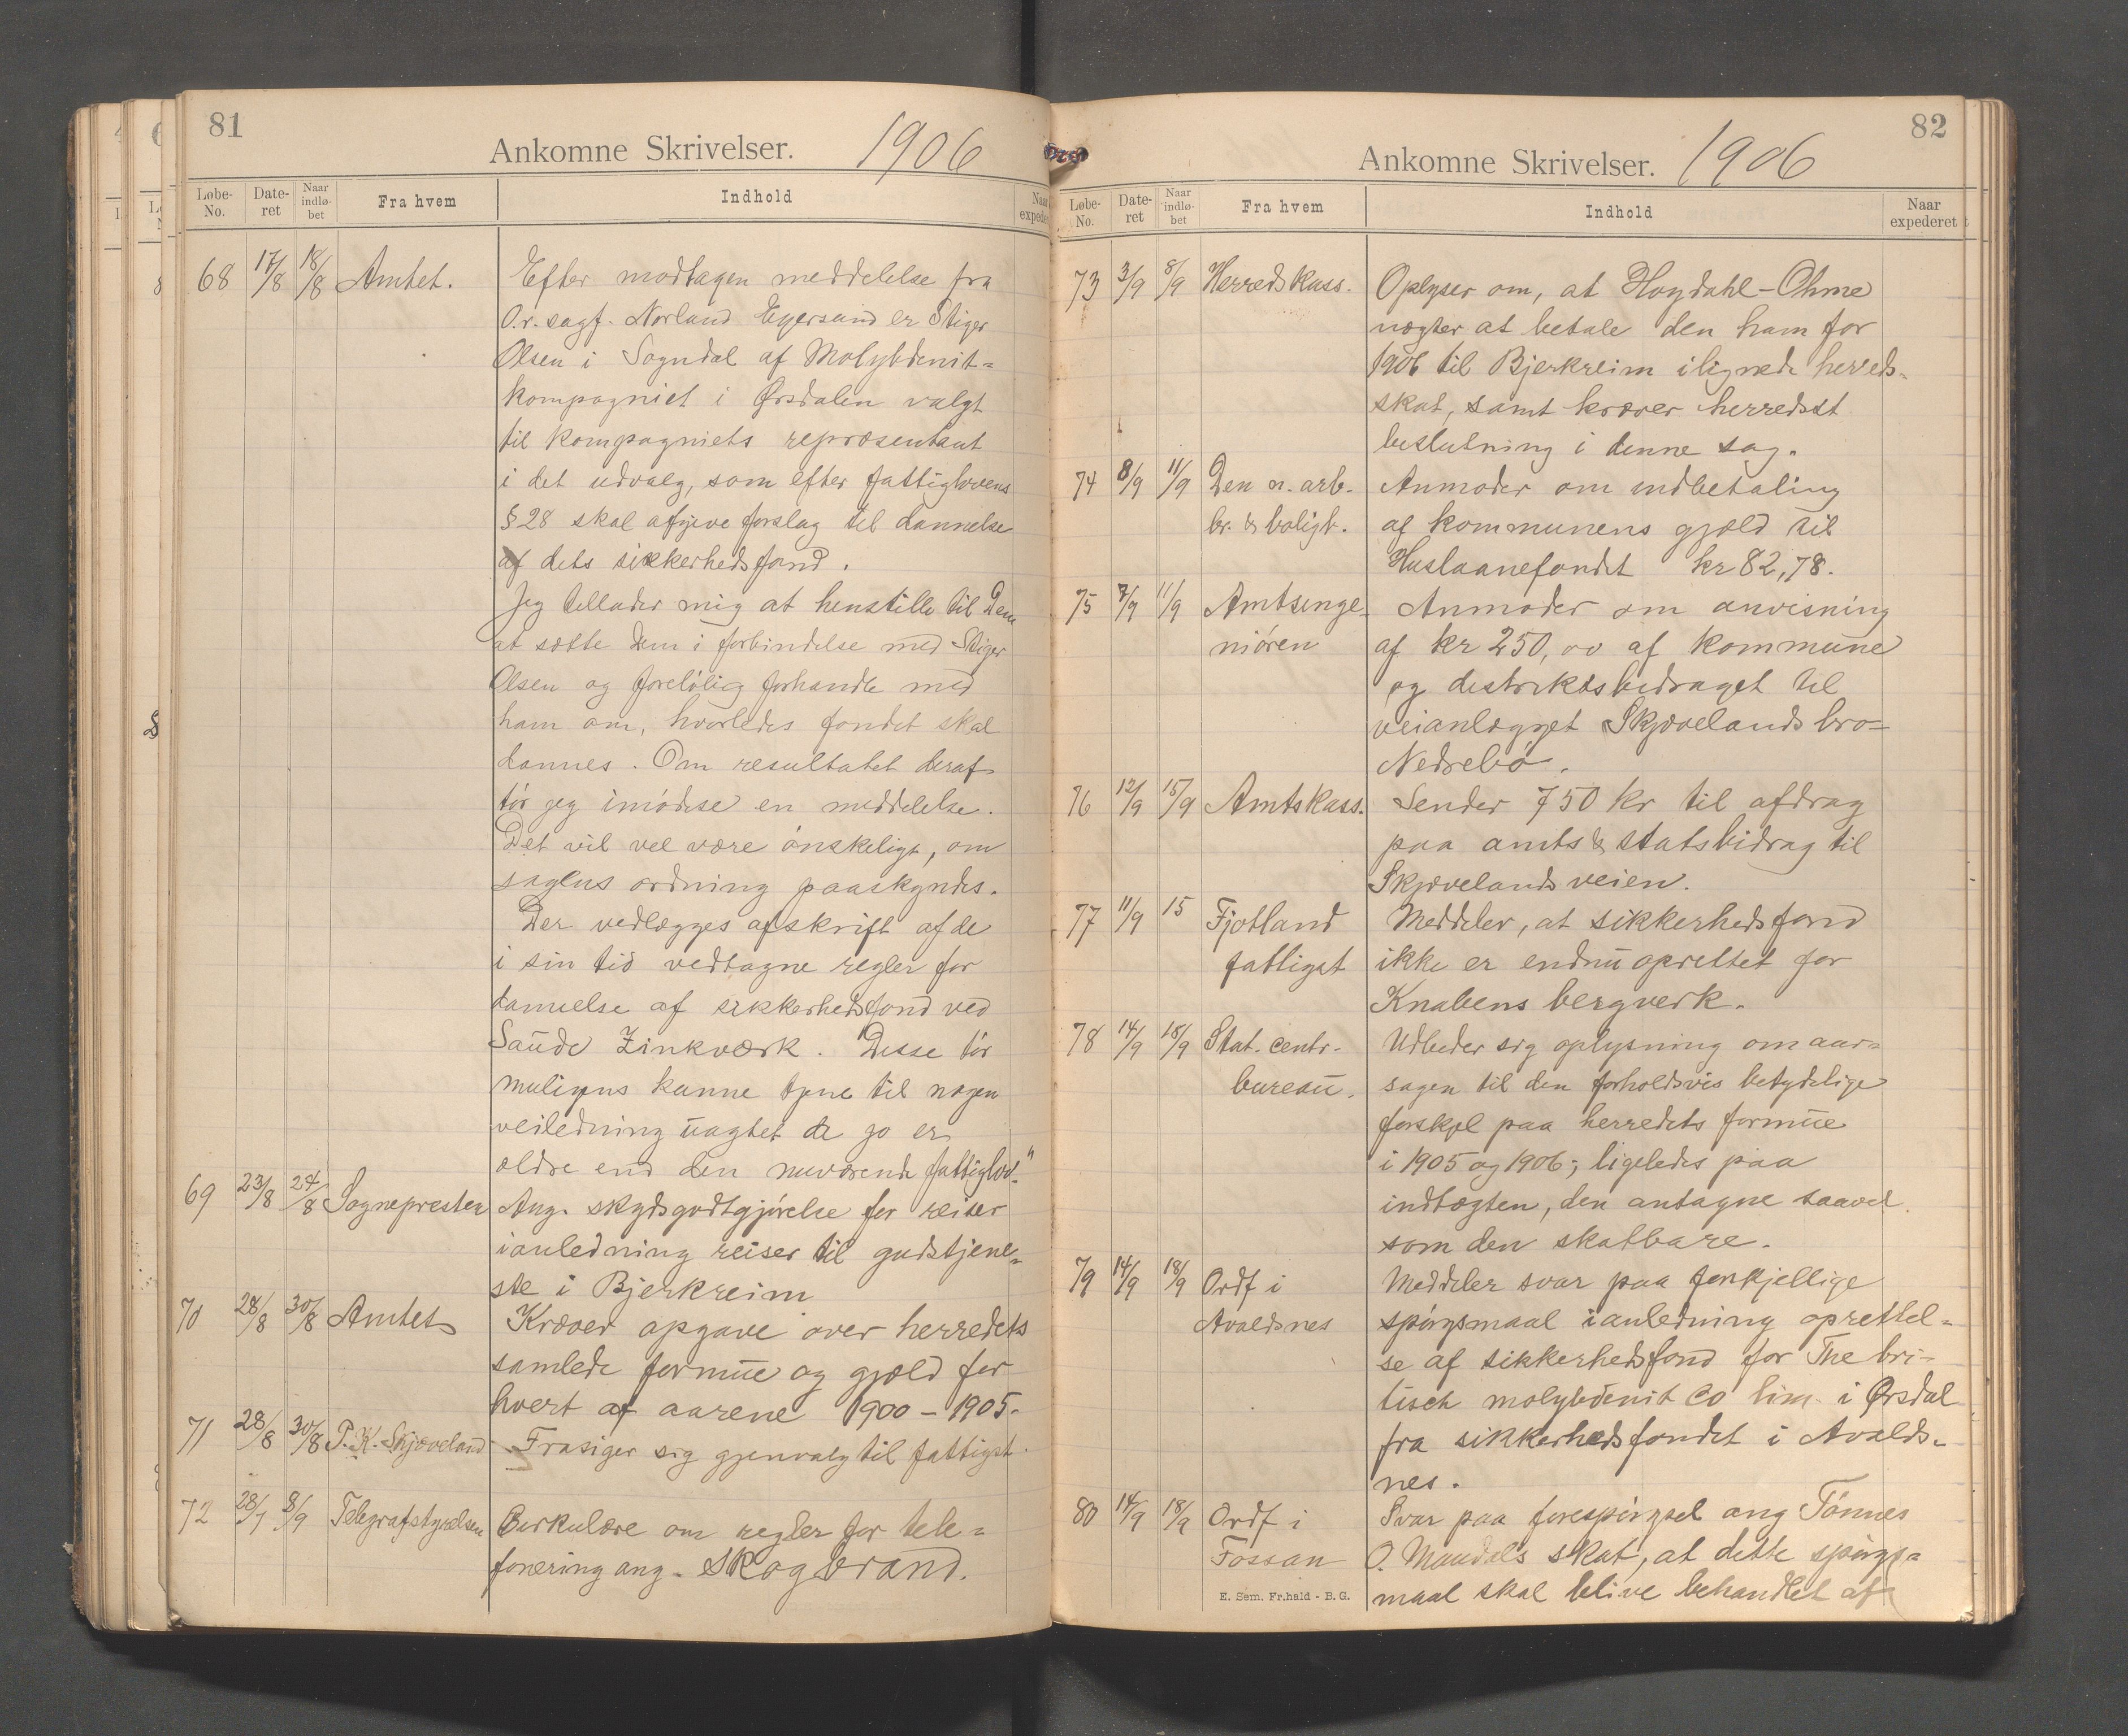 81
Ankomne Skrivelser. 1906
Løbe-No. Date-ret Naar indlø-bet Fra hvem Indhold Naar expede
68 17/8 18/8 Amtet. Efter modtagen meddelelse fra
O.r. sagf. Norland Egersund er Stiger
Olsen i Sogndal af Molybdenit-
kompagniet i Ørsdalen valgt
til kompagniets repræsentant
i det udvalg, som efter fattiglovens
§ 28 skal afgive forslag til dannelse
af dets sikkerhedsfond.
Jeg tillader mig at henstille til Dem
at sætte Dem i forbindelse med Stiger
Olsen og foreløbig forhandle med
ham om, hvorledes fondet skal
dannes. Om resultatet deraf
tør jeg imødese en meddelelse.
Det vil vel være ønskeligt, om
sagens ordning paaskyndes.
Der vedlægges afskrift af de
i sin tid vedtagne regler for
dannelse af sikkerhedsfond ved
Saude Zinkværk. Disse tør
muligens kunne tjene til nogen
veiledning uagtet de jo er
ældre end den nuværende fattiglov."
69 23/8 24/8 Sognepresten Ang. skydsgodtgjørelse for reiser
ianledning reiser til gudstjene-
ste i Bjerkreim
70 28/8 30/8 Amtet Kræver opgave over herredets
samlede formue og gjæld for
hvert af aarene 1900-1905.
71 28/8 30/8 P.K. Skjæveland Frasiger sig gjenvalg til fattigst.
72 28/7 8/9 Telegrafstyrelsen Cirkulære om regler for tele-
fonering ang. Skogbrand.
82
Ankomne Skrivelser. 1906
Løbe-No. Date-ret Naar indlø-bet Fra hvem Indhold Naar expederet
73 3/9 8/9 Herredskass. Oplyser om, at Hogdahl-Ohme
nægter at betale den ham for
1906 til Bjerkreim ilignede herreds-
skat, samt kræver herredsst
beslutning i denne sag.
74 8/9 11/9 Den n. arb. Anmoder om indbetaling
br. & boligb. af kommunens gjæld til
Huslaanefondet kr 82,78.
75 7/9 11/9 Amtsinge- Anmoder om anvisning
niøren af kr 250,00 af kommune
og distriktsbidraget til
veianlægget Skjævelandsbro-
Nedrebø.
76 12/9 15/9 Amtskass. Sender 750 kr til afdrag
paa amts & statsbidrag til
Skjævelandsveien.
77 11/9 15 Fjotland Meddeler, at sikkerhedsfond
fattigst ikke er endnu oprettet for
Knabens bergverk.
78 14/9 18/9 Stat. centr. Udbeder sig oplysning om aar-
bureau. sagen til den forholdsvis betydelige
forskjel paa herredets formue
i 1905 og 1906; ligeledes paa
indtægten, den antagne saavel
som den skatbare.
79 14/9 18/9 Ordf i Meddeler svar paa forskjellige
Avaldsnes spørgsmaal ianledning oprettel-
se af sikkerhedsfond for The bri-
tisch molybdenit Co lim. i Ørsdal
fra sikkerhedsfondet i Avalds-
nes.
80 14/9 18/9 Ordf i Svar paa forespørgsel ang Tønnes
Fossan O. Maudals skat, at dette spørgs-
E. Sem. Fr.hald - B.G. maal skal blive behandlet af